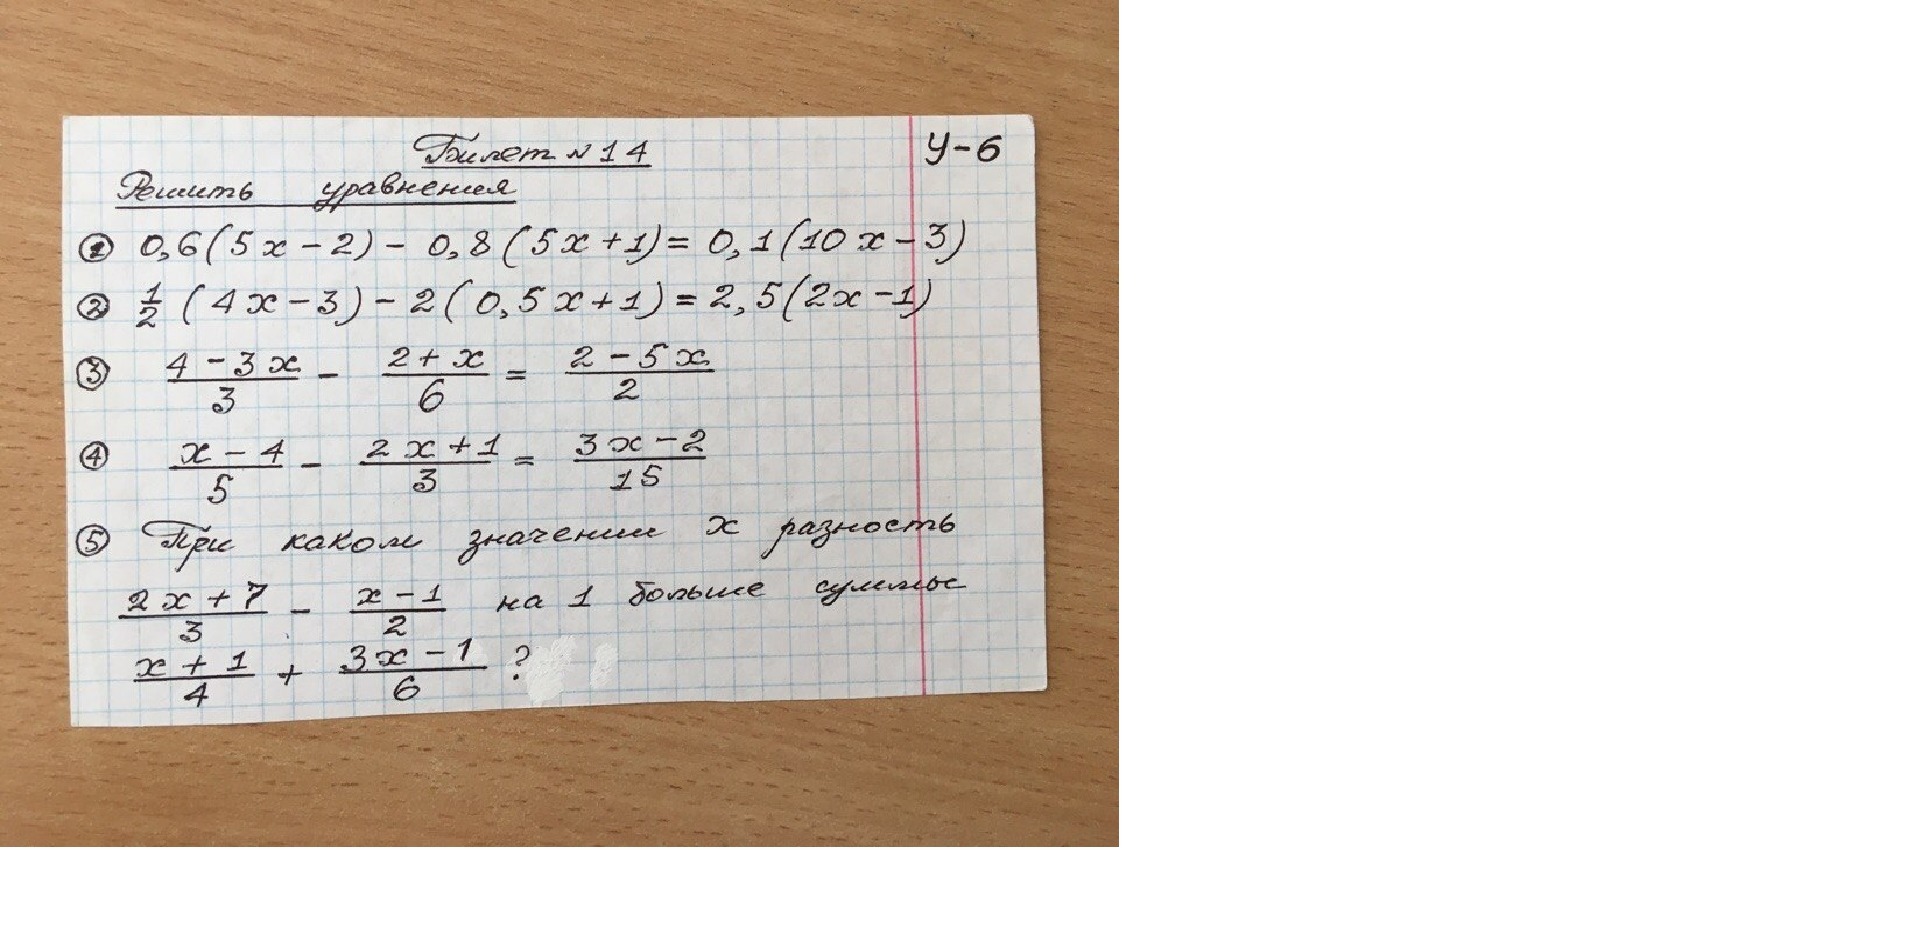 Билет №14
У-6
Решить уравнения
① 0,6(5x-2)- 0,8(5x+1)= 0,1(10x-3)
② 1/2 (4x-3)-2(0,5x+1)=2,5(2x-1)
③ (4-3x)/3 - (2+x)/6 = (2-5x)/2
④ (x-4)/5 - (2x+1)/3 = (3x-2)/15
⑤ При каком значении x разность
(2x+7)/3 - (x-1)/2 на 1 больше суммы
(x+1)/4 + (3x-1)/6 ?